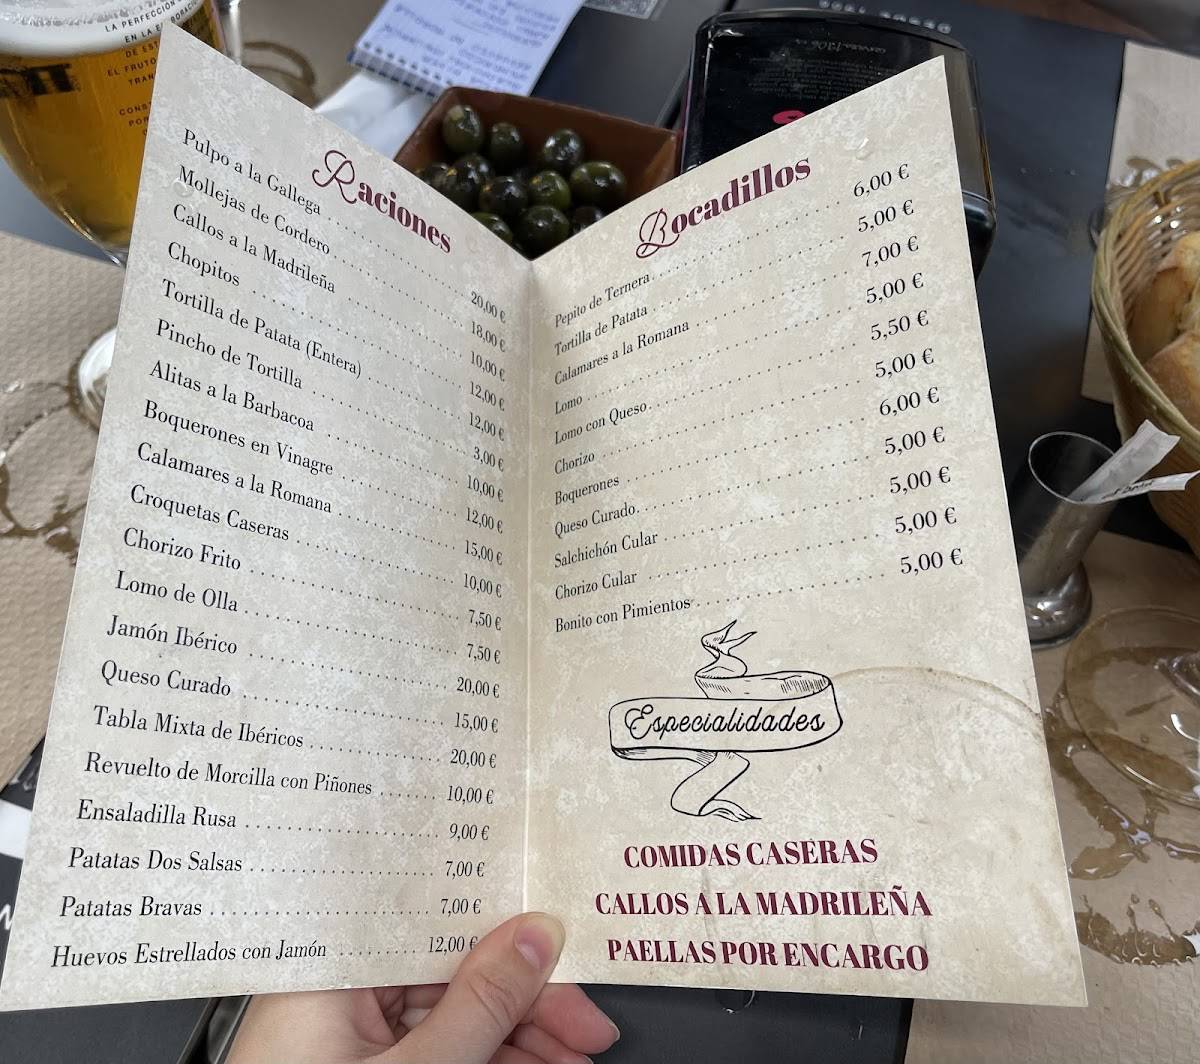 LA PERFECCIÓN
EN LA
EL FRUTO
Raciones
Pulpo a la Gallega 20,00 €
Mollejas de Cordero 18,00 €
Callos a la Madrileña 10,00 €
Chopitos 12,00 €
Tortilla de Patata (Entera) 12,00 €
Pincho de Tortilla 3,00 €
Alitas a la Barbacoa 10,00 €
Boquerones en Vinagre 12,00 €
Calamares a la Romana 15,00 €
Croquetas Caseras 10,00 €
Chorizo Frito 7,50 €
Lomo de Olla 7,50 €
Jamón Ibérico 20,00 €
Queso Curado 15,00 €
Tabla Mixta de Ibéricos 20,00 €
Revuelto de Morcilla con Piñones 10,00 €
Ensaladilla Rusa 9,00 €
Patatas Dos Salsas 7,00 €
Patatas Bravas 7,00 €
Huevos Estrellados con Jamón 12,00 €
Bocadillos
Pepito de Ternera 6,00 €
Tortilla de Patata 5,00 €
Calamares a la Romana 7,00 €
Lomo 5,00 €
Lomo con Queso 5,50 €
Chorizo 5,00 €
Boquerones 6,00 €
Queso Curado 5,00 €
Salchichón Cular 5,00 €
Chorizo Cular 5,00 €
Bonito con Pimientos 5,00 €
Especialidades
COMIDAS CASERAS
CALLOS A LA MADRILEÑA
PAELLAS POR ENCARGO